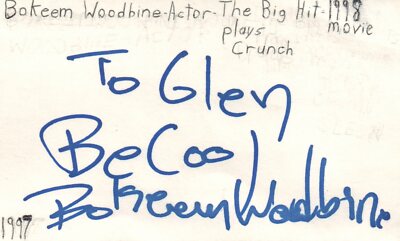 Bokeem Woodbine-Actor-The Big Hit-1998
plays movie
Crunch
To Glen
Be Cool
Bokeem Woodbine
1997